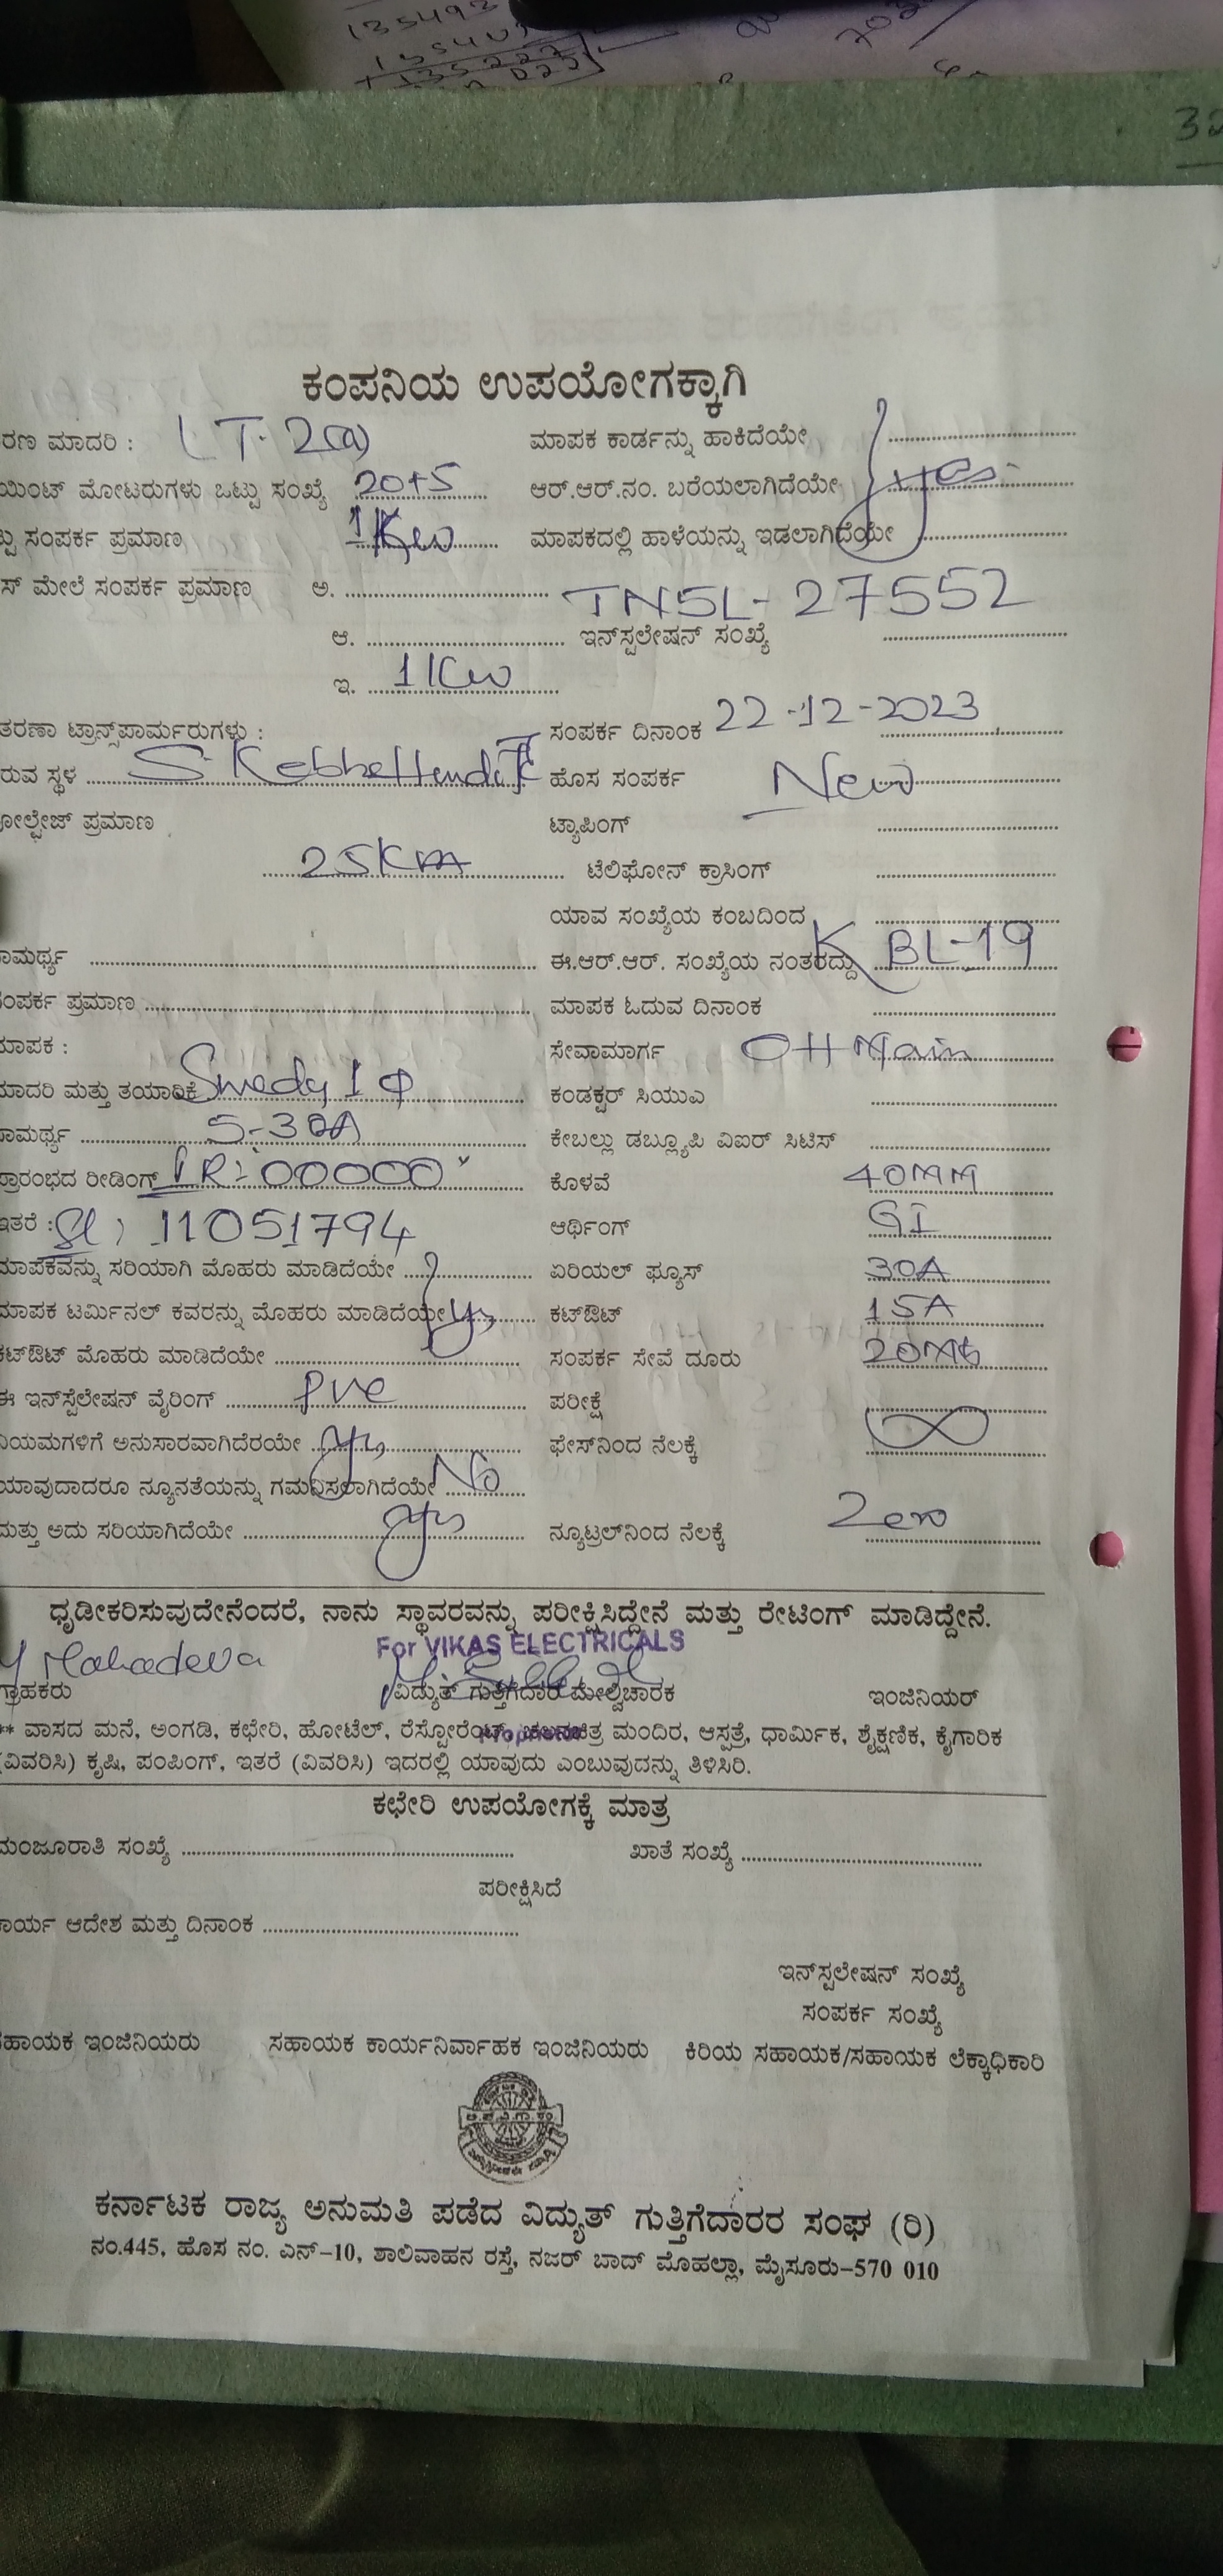 135493
32
ಕಂಪನಿಯ ಉಪಯೋಗಕ್ಕಾಗಿ
ರಣ ಮಾದರಿ : LT-2(a) ಮಾಪಕ ಕಾರ್ಡನ್ನು ಹಾಕಿದೆಯೇ
ಯಿಂಟ್ ಮೋಟರುಗಳು ಒಟ್ಟು ಸಂಖ್ಯೆ 20+5 ಆರ್.ಆರ್.ನಂ. ಬರೆಯಲಾಗಿದೆಯೇ yes
ಟ್ಟು ಸಂಪರ್ಕ ಪ್ರಮಾಣ 1Kw ಮಾಪಕದಲ್ಲಿ ಹಾಳೆಯನ್ನು ಇಡಲಾಗಿದೆಯೇ
ಸ್ ಮೇಲೆ ಸಂಪರ್ಕ ಪ್ರಮಾಣ ಅ. TNSL-27552
ಆ. ಇನ್‌ಸ್ಟಲೇಷನ್ ಸಂಖ್ಯೆ
ಇ. 1Kw
ತರಣಾ ಟ್ರಾನ್ಸ್‌ಪಾರ್ಮರುಗಳು : ಸಂಪರ್ಕ ದಿನಾಂಕ 22-12-2023
ರುವ ಸ್ಥಳ ಹೊಸ ಸಂಪರ್ಕ New
ೋಲ್ಟೇಜ್ ಪ್ರಮಾಣ ಟ್ಯಾಪಿಂಗ್
25 ಟೆಲಿಫೋನ್ ಕ್ರಾಸಿಂಗ್
ಯಾವ ಸಂಖ್ಯೆಯ ಕಂಬದಿಂದ
ಾಮರ್ಥ್ಯ ಈ.ಆರ್.ಆರ್. ಸಂಖ್ಯೆಯ ನಂತರದ್ದು KBL-19
ಸಂಪರ್ಕ ಪ್ರಮಾಣ ಮಾಪಕ ಓದುವ ದಿನಾಂಕ
ಮಾಪಕ : ಸೇವಾಮಾರ್ಗ OH Main
ಮಾದರಿ ಮತ್ತು ತಯಾರಿಕೆ 1 Φ ಕಂಡಕ್ಟರ್ ಸಿಯುಎ
ಾಮರ್ಥ್ಯ 5-30A ಕೇಬಲ್ಲು ಡಬ್ಲ್ಯೂಪಿ ವಿಐರ್ ಸಿಟಿಸ್
ಪ್ರಾರಂಭದ ರೀಡಿಂಗ್ IR:- 00000 ಕೊಳವೆ 40MM
ಇತರೆ : Sl: 11051794 ಆರ್ಥಿಂಗ್ GI
ಮಾಪಕವನ್ನು ಸರಿಯಾಗಿ ಮೊಹರು ಮಾಡಿದೆಯೇ ಏರಿಯಲ್ ಫ್ಯೂಸ್ 30A
ಮಾಪಕ ಟರ್ಮಿನಲ್ ಕವರನ್ನು ಮೊಹರು ಮಾಡಿದೆಯೇ yes ಕಟ್‌ಔಟ್ 15A
ಕಟ್‌ಔಟ್ ಮೊಹರು ಮಾಡಿದೆಯೇ ಸಂಪರ್ಕ ಸೇವೆ ದೂರು 20Mts
ಈ ಇನ್‌ಸ್ಟಲೇಷನ್ ವೈರಿಂಗ್ pvc ಪರೀಕ್ಷೆ
ನಿಯಮಗಳಿಗೆ ಅನುಸಾರವಾಗಿದೆರಯೇ yes ಫೇಸ್‌ನಿಂದ ನೆಲಕ್ಕೆ ∞
ಯಾವುದಾದರೂ ನ್ಯೂನತೆಯನ್ನು ಗಮನಿಸಲಾಗಿದೆಯೇ No
ಮತ್ತು ಅದು ಸರಿಯಾಗಿದೆಯೇ yes ನ್ಯೂಟ್ರಲ್‌ನಿಂದ ನೆಲಕ್ಕೆ Zero
ಧೃಡೀಕರಿಸುವುದೇನೆಂದರೆ, ನಾನು ಸ್ಥಾವರವನ್ನು ಪರೀಕ್ಷಿಸಿದ್ದೇನೆ ಮತ್ತು ರೇಟಿಂಗ್ ಮಾಡಿದ್ದೇನೆ.
For VIKAS ELECTRICALS
Mahadeva
ಗ್ರಾಹಕರು ವಿದ್ಯುತ್ ಗುತ್ತಿಗೆದಾರ ಮೇಲ್ವಿಚಾರಕ ಇಂಜಿನಿಯರ್
** ವಾಸದ ಮನೆ, ಅಂಗಡಿ, ಕಛೇರಿ, ಹೋಟೆಲ್, ರೆಸ್ಟೋರೆಂಟ್, ಚಲನಚಿತ್ರ ಮಂದಿರ, ಆಸ್ಪತ್ರೆ, ಧಾರ್ಮಿಕ, ಶೈಕ್ಷಣಿಕ, ಕೈಗಾರಿಕ
Proprietor
(ವಿವರಿಸಿ) ಕೃಷಿ, ಪಂಪಿಂಗ್, ಇತರೆ (ವಿವರಿಸಿ) ಇದರಲ್ಲಿ ಯಾವುದು ಎಂಬುವುದನ್ನು ತಿಳಿಸಿರಿ.
ಕಛೇರಿ ಉಪಯೋಗಕ್ಕೆ ಮಾತ್ರ
ಮಂಜೂರಾತಿ ಸಂಖ್ಯೆ ಖಾತೆ ಸಂಖ್ಯೆ
ಪರೀಕ್ಷಿಸಿದೆ
ಕಾರ್ಯ ಆದೇಶ ಮತ್ತು ದಿನಾಂಕ
ಇನ್‌ಸ್ಟಲೇಷನ್ ಸಂಖ್ಯೆ
ಸಂಪರ್ಕ ಸಂಖ್ಯೆ
ಸಹಾಯಕ ಇಂಜಿನಿಯರು ಸಹಾಯಕ ಕಾರ್ಯನಿರ್ವಾಹಕ ಇಂಜಿನಿಯರು ಕಿರಿಯ ಸಹಾಯಕ/ಸಹಾಯಕ ಲೆಕ್ಕಾಧಿಕಾರಿ
ಕರ್ನಾಟಕ ರಾಜ್ಯ ಅನುಮತಿ ಪಡೆದ ವಿದ್ಯುತ್ ಗುತ್ತಿಗೆದಾರರ ಸಂಘ (ರಿ)
ನಂ.445, ಹೊಸ ನಂ. ಎನ್-10, ಶಾಲಿವಾಹನ ರಸ್ತೆ, ನಜರ್ ಬಾದ್ ಮೊಹಲ್ಲಾ, ಮೈಸೂರು-570 010